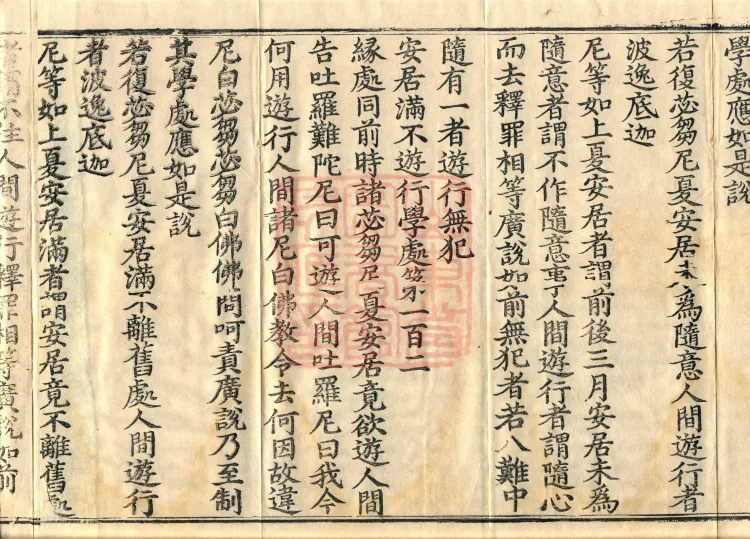 學處應如是說
若復苾芻尼夏安居未爲隨意人間遊行者
波逸底迦
尼等如上夏安居者謂前後三月安居未爲
隨意者謂不作隨意事人間遊行者謂隨心
而去釋罪相等廣說如前無犯者若八難中
隨有一者遊行無犯
安居滿不遊行學處第一百二
緣處同前時諸苾芻尼夏安居竟欲遊人間
告吐羅難陀尼曰可遊人間吐羅尼曰我今
何用遊行人間諸尼白佛教令去何因故違
尼白苾芻苾芻白佛佛問呵責廣說乃至制
其學處應如是說
若復苾芻尼夏安居滿不離舊處人間遊行
者波逸底迦
尼等如上夏安居滿者謂安居竟不離舊處
者謂不往人間遊行釋罪相等廣說如前